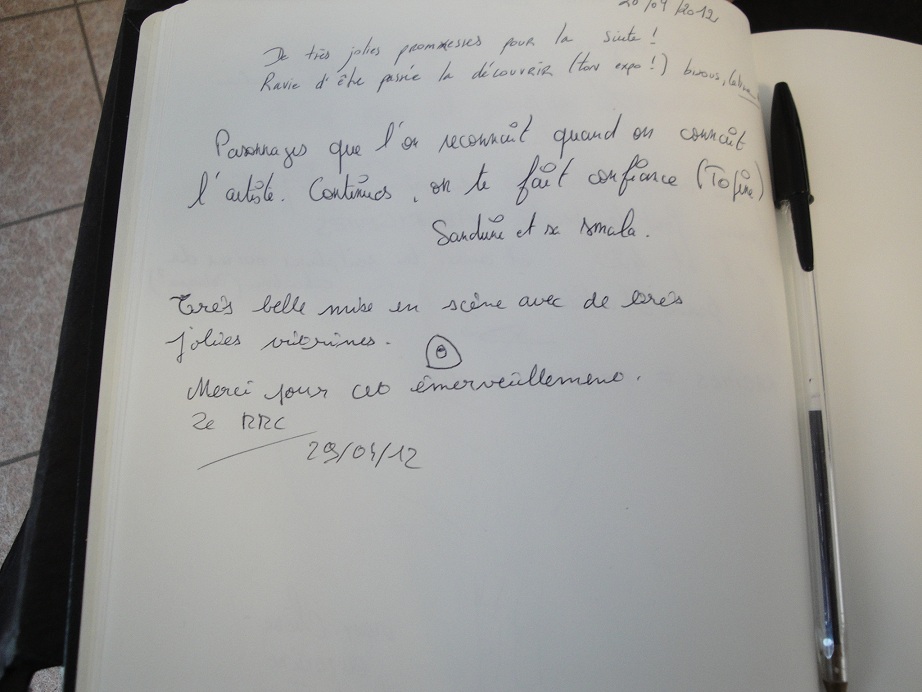 /04/2012
De très jolies prommesses pour la suite !
Ravie d'être passée la découvrir (ton expo !) bisous,
Personnages que l'on reconnaît quand on connaît
l'artiste. Continues, on te fait confiance
et sa smala.
Très belle mise en scène avec de très
jolies vitrines.
Merci pour cet émerveillement.
RRC
29/04/12